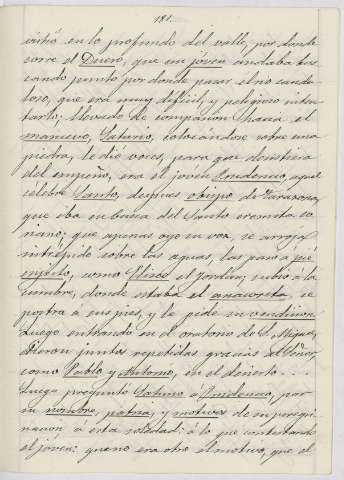 181.
virtió en lo profundo del valle, por donde
corre el Duero, que un jóven andaba bus
cando punto por donde pasar el rio cauda
loso, que era muy difícil y peligroso inten
tarlo; llevado de compasion hacia el
mancevo, Saturio, colocándose sobre una
piedra, le dió voces, para que desistiera
del empeño, era el joven Prudencio, aquel
célebre Santo, despues obispo de Tarazona,
que iba en busca del Santo eremita so
riano; que apenas oye su voz, se arroja
intrépido sobre las aguas, las pasa á pié
enjuto, como Eliseo el Jordan; subió á la
cumbre, donde estaba el anacoreta, se
postra á sus pies, y le pide su vendicion
Luego entrando en el oratorio de S. Miguel,
dieron juntos repetidas gracias al Señor,
como Pablo y Antonio, en el desierto...
Luego preguntó Saturio á Prudencio, por
su nombre, patria, y motivos de su peregri
nacion á esta soledad: á lo que contestando
el jóven: que no era otro el motivo, que el